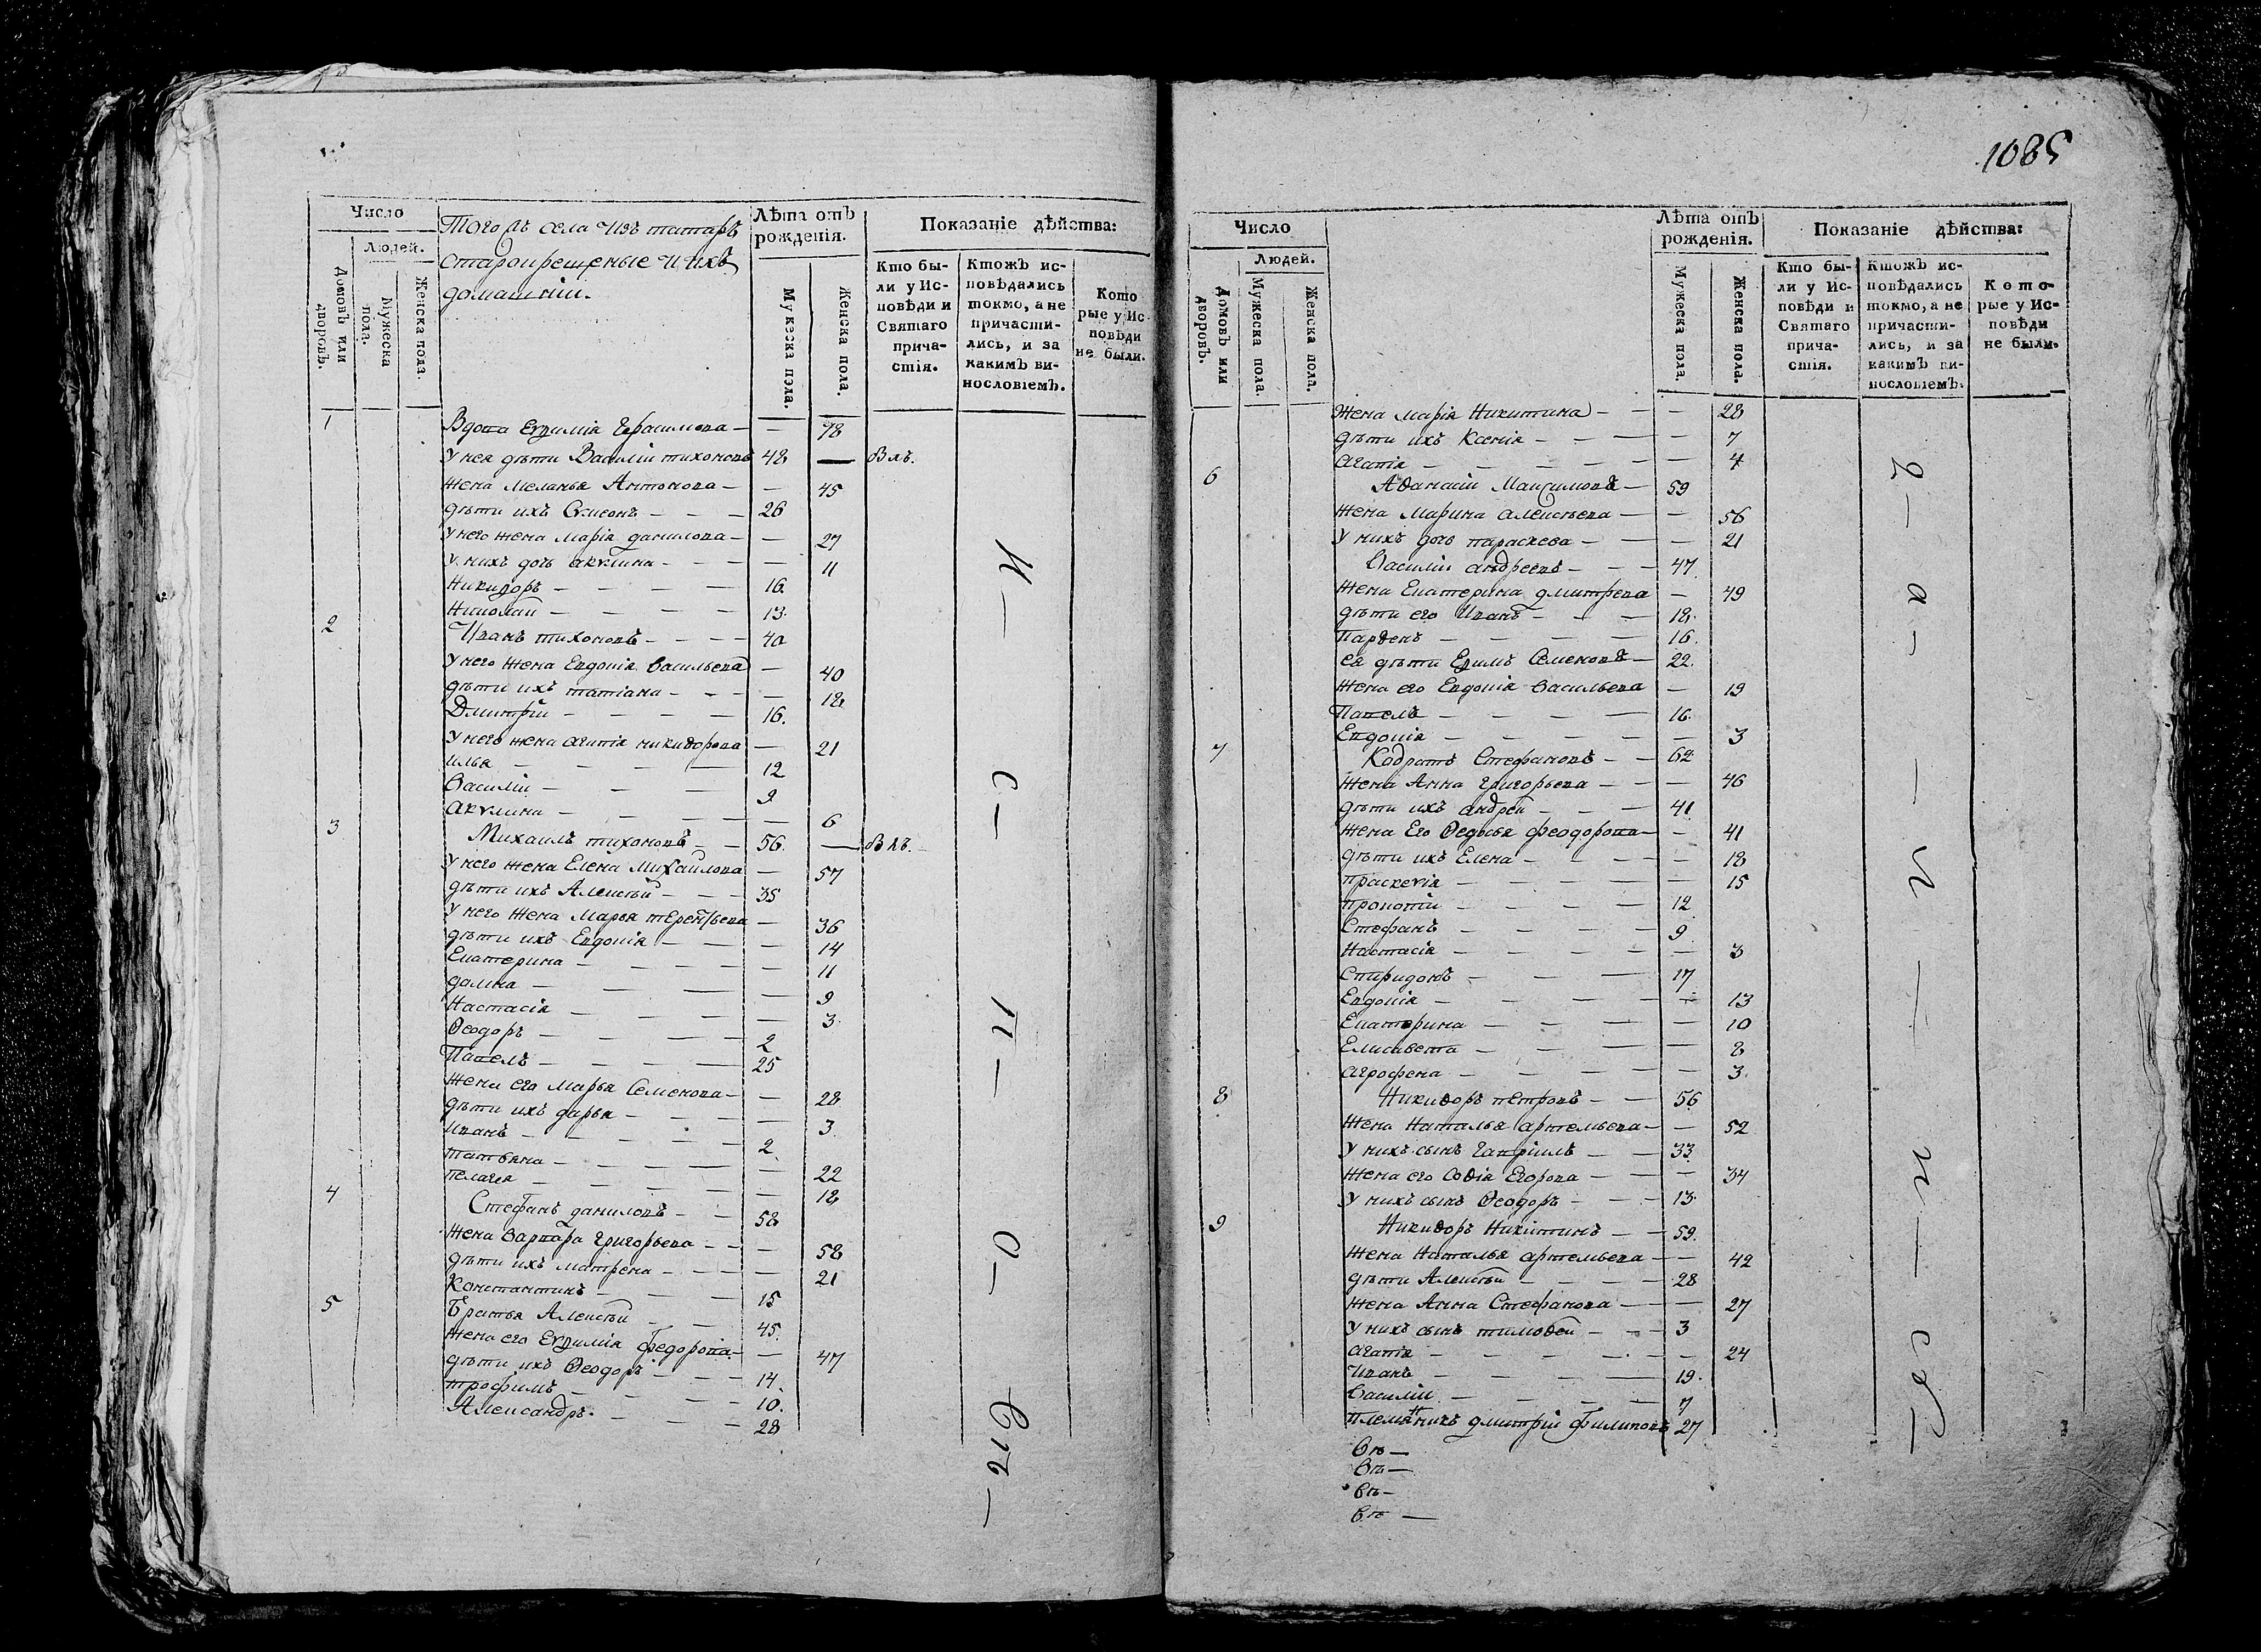 1085
Число
Людей.
Домовъ или дворовъ.
Мужеска пола.
Женска пола.
Того жъ села Изъ татаръ
старокрещеные и ихъ
домашніи.
Лѣта отъ рожденія.
Мужеска пола.
Женска пола.
Показаніе дѣйства:
Кто были у Исповѣди и Святаго причастія.
Ктожъ исповѣдались токмо, а не причастились, и за какимъ винословіемъ.
Которые у Исповѣди не были.
1 Вдова Евфимія Герасимова — — 78
У нея дѣти Василіи тихоновъ 48 — Влъ.
жена меланья Антонова — — 45
дѣти ихъ Симеонъ — — — 26
у него жена марія данилова — — 27
у нихъ дочь акулина — — — 11
Никифоръ — — — — 16.
Николай — — — — 13.
2 Иванъ тихоновъ — — — 40
у него жена Евдокія васильева — 40
дѣти ихъ татіана — — — 18
Дмитріи — — — — 16.
у него жена агапія никифорова — 21
илья — — — 12
Василіи — — — 9
акулина — — — — 6
3 Михаилъ тихоновъ — — 56. — Влъ.
у него жена Елена Михаилова — 57
дѣти ихъ Алексѣй — — — 35
у него жена Марья терентьева — 36
дѣти ихъ Евдокія — — — 14
Екатерина — — — — 11
домна — — — — 9
Настасія — — — — 3.
Феодоръ — — — — 2
Павелъ — — — — 25
жена его марья Семенова — — 28
дѣти ихъ дарья — — — 3.
иванъ — — — — 2.
татьяна — — — — 22
пелагея — — — — 18
4 Стефанъ даниловъ — — 58
жена варвара григорьева — — — 58
дѣти ихъ матрена — — — — 21
Константинъ — — — 15
5 Братья Алексѣй — — 45.
жена его Евфимія федорова — — 47
дѣти ихъ Феодоръ — — — 14.
трофимъ — — — — 10.
Александръ — — — — 28
И — с — п — о — вѣ —
Число
Людей.
Домовъ или дворовъ.
Мужеска пола.
Женска пола.
Лѣта отъ рожденія.
Мужеска пола.
Женска пола.
Показаніе дѣйства:
Кто были у Исповѣди и Святаго причастія.
Ктожъ исповѣдались токмо, а не причастились, и за какимъ винословіемъ.
Которые у Исповѣди не были.
жена марія Никитина — — — 28
дѣти ихъ Ксенія — — — — 7
агапія — — — — — — 4
6 Афанасіи Максимовъ — 59
жена Марина алексѣева — — 56
у нихъ дочь параскева — — — 21
василіи андреевъ — — — 47.
жена Екатерина дмитрева — 49
дѣти его Иванъ — — — 18.
Парфенъ — — — — 16.
ея дѣти Ефимъ Семеновъ — 22.
жена его Евдокія васильева — 19
Павелъ — — — — 16.
Евдокія — — — — — 3
7 Кодратъ Стефановъ — — 62
жена Анна григорьева — — — 46
дѣти ихъ андрей — — — 41
жена Его Федосья феодорова — — 41
дѣти ихъ Елена — — — — — 18
праскевія — — — — — 15
прокопіи — — — — 12
Стефанъ — — — — 9
Настасія — — — — — 3
Спиридонъ — — — 17
Евдокія — — — — — 13
Екатерина — — — — 10
Елисавета — — — — 8
агрофена — — — — — 3.
8 Никифоръ петровъ — — 56
жена Наталья артемьева — — 52
у нихъ сынъ гавріилъ — — 33.
жена его софія Егорова — — — 34
у нихъ сынъ Феодоръ — — — 13.
9 Никифоръ Никитинъ — — 59.
жена Наталья артемьева — — 42
дѣти Алексѣй — — — — 28
жена Анна Стефанова — — — 27
у нихъ сынъ тимофей — — — 3
агапія — — — — — — 24
Иванъ — — — — 19.
василіи — — — — 7
племянникъ дмитріи филиповъ 27